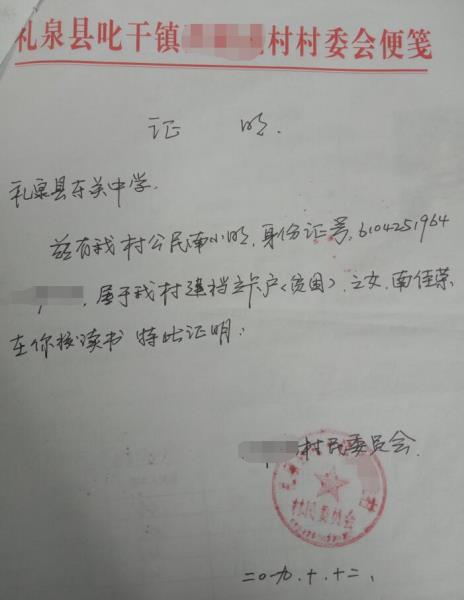 礼泉县叱干镇村村委会便笺
证 明.
礼泉县东关中学.
兹有我村公民南小明,身份证号,6104251964
,属于我村建档立卡户(贫困),之女,南佳荣
在你校读书 特此证明.
村民委员会.
村民委员会
二〇一九.十.十二.